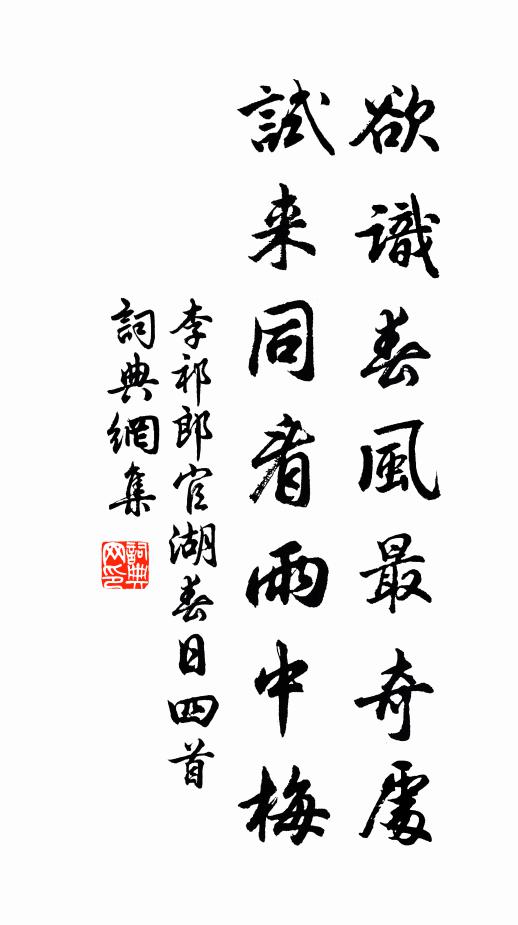 欲識春風最奇處
試来同看雨中梅
李祁郎官湖春日四首
詞典網集
詞典网印